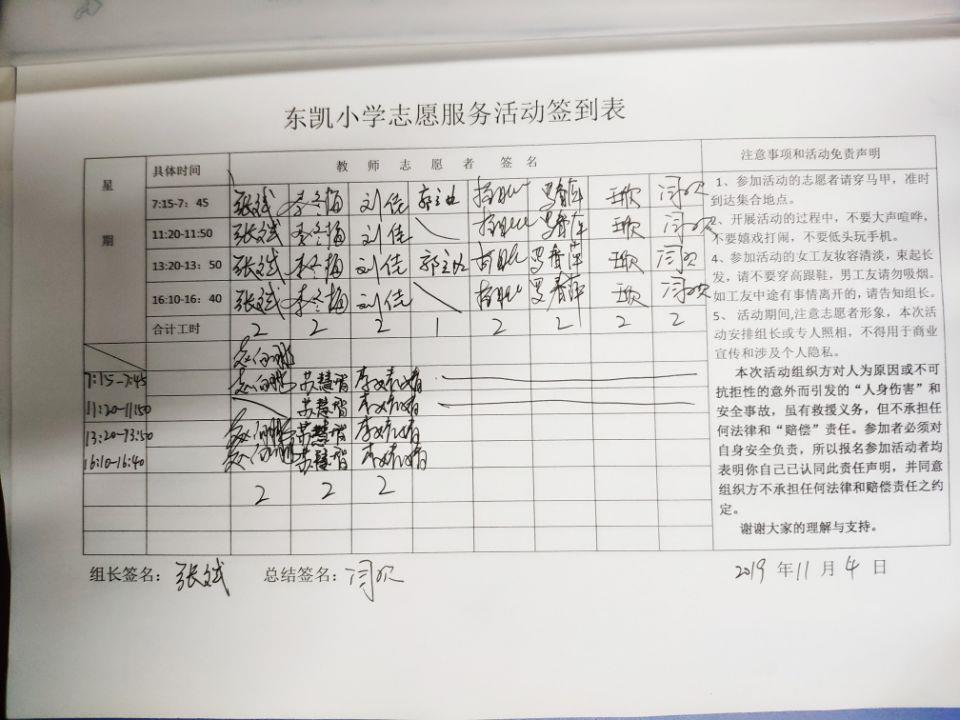 东凯小学志愿服务活动签到表
星期
具体时间 教师志愿者签名
7:15-7：45 张斌 李冬梅 刘佳
11:20-11:50 张斌 李冬梅 刘佳
13:20-13：50 张斌 李冬梅 刘佳
16:10-16：40 张斌 李冬梅 刘佳
合计工时 2 2 2 1 2 2 2 2
7:15-7:45 苏慧婧
11:20-11:50 苏慧婧
13:20-13:50 苏慧婧
16:10-16:40 苏慧婧
2 2 2
注意事项和活动免责声明
1、参加活动的志愿者请穿马甲，准时
到达集合地点。
2、开展活动的过程中，不要大声喧哗，
不要嬉戏打闹，不要低头玩手机。
4、参加活动的女工友妆容清淡，束起长
发，请不要穿高跟鞋，男工友请勿吸烟。
如工友中途有事情离开的，请告知组长。
5、 活动期间,注意志愿者形象，本次活
动安排组长或专人照相，不得用于商业
宣传和涉及个人隐私。
本次活动组织方对人为原因或不可
抗拒性的意外而引发的“人身伤害”和
安全事故，虽有救援义务，但不承担任
何法律和“赔偿”责任。参加者必须对
自身安全负责，所以报名参加活动者均
表明你自己已认同此责任声明，并同意
组织方不承担任何法律和赔偿责任之约
定。
谢谢大家的理解与支持。
组长签名：张斌 总结签名：闫欢
2019 年 11 月 4 日